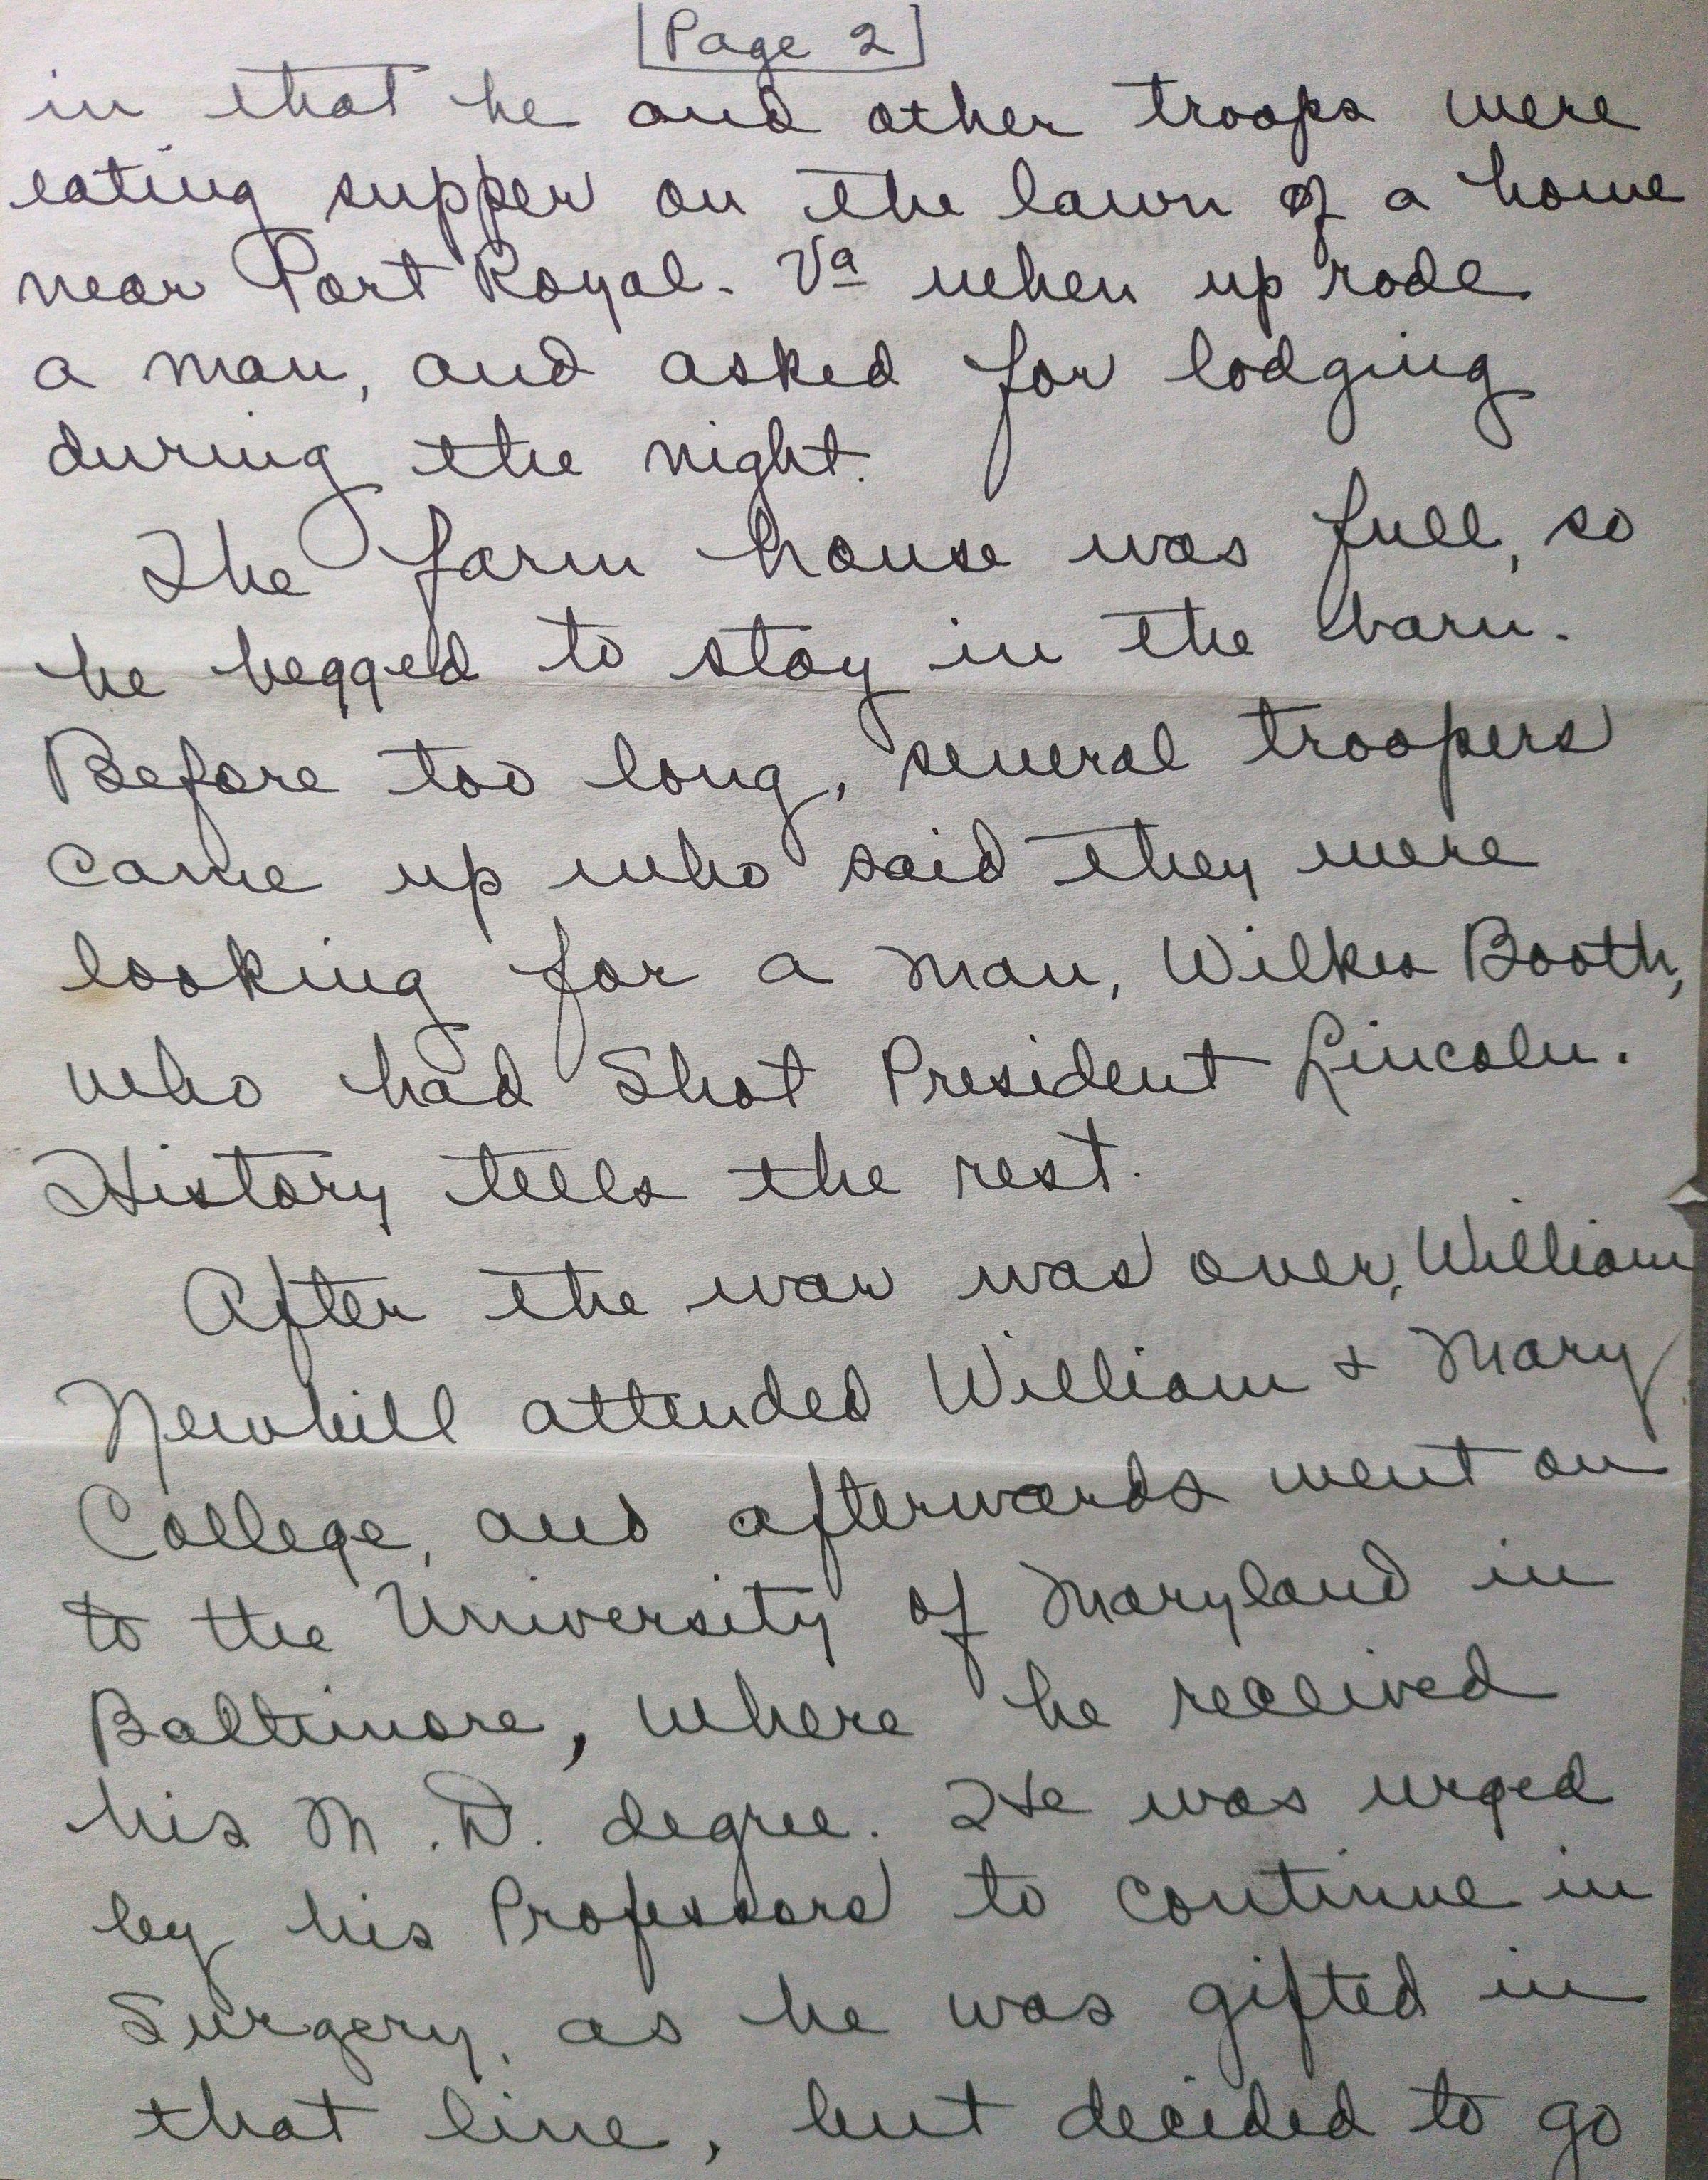 [Page 2]
in that he and other troops were
eating supper on the lawn of a home
near Port Royal. Va when up rode
a man, and asked for lodging
during the night.
The farm house was full, so
he begged to stay in the barn.
Before too long, several troopers
came up who said they were
looking for a man, Wilkes Booth,
who had Shot President Lincoln.
History tells the rest.
After the war was over, William
Newbill attended William & Mary
College, and afterwards went on
to the University of Maryland in
Baltimore, where he received
his M.D. degree. He was urged
by his Professors to continue in
Surgery, as he was gifted in
that line, but decided to go